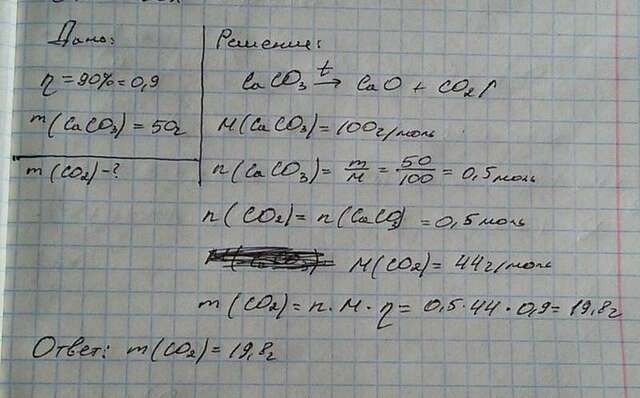 Дано:
η = 90% = 0,9
m(CaCO₃) = 50г
m(CO₂) - ?
Решение:
CaCO₃ t→ CaO + CO₂↑
M(CaCO₃) = 100г/моль
n(CaCO₃) = m/M = 50/100 = 0,5моль
n(CO₂) = n(CaCO₃) = 0,5моль
M(CO₂) = 44г/моль
m(CO₂) = n·M·η = 0,5·44·0,9 = 19,8г
Ответ: m(CO₂) = 19,8г